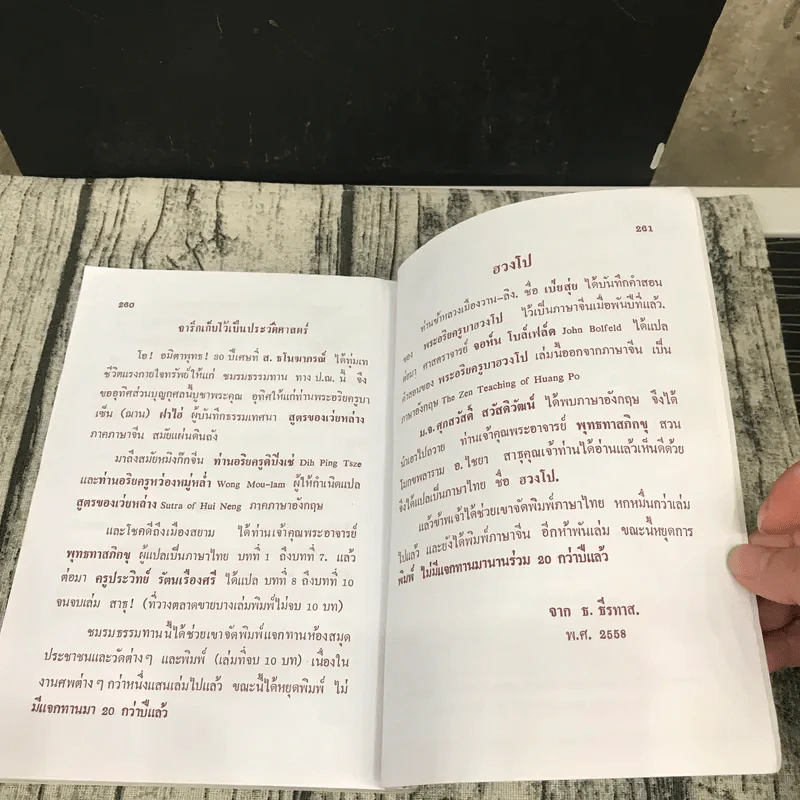 260
จารึกเก็บไว้เป็นประวัติศาสตร์
โอ! อมิตาพุทธ! 30 ปีเศษที่ ส. ธโนฆาภรณ์ ได้ทุ่มเท
ชีวิตแรงกายใจทรัพย์ให้แก่ ชมรมธรรมทาน ทาง ป.ณ. นี้ จึง
ขออุทิศส่วนบุญกุศลนี้บูชาพระคุณ อุทิศให้แก่ท่านพระอริยครูบา
เซ็น (ฌาน) ฝาไฮ่ ผู้บันทึกธรรมเทศนา สูตรของเว่ยหล่าง
ภาคภาษาจีน สมัยแผ่นดินถัง
มาถึงสมัยหมิงกิ๊กจีน ท่านอริยครูดิปิงเซ่ Dih Ping Tsze
และท่านอริยครูหว่องหมู่หล่ำ Wong Mou-lam ผู้ให้กำเนิดแปล
สูตรของเว่ยหล่าง Sutra of Hui Neng ภาคภาษาอังกฤษ
และโชคดีถึงเมืองสยาม ได้ท่านเจ้าคุณพระอาจารย์
พุทธทาสภิกขุ ผู้แปลเป็นภาษาไทย บทที่ 1 ถึงบทที่ 7. แล้ว
ต่อมา ครูประวิทย์ รัตนเรืองศรี ได้แปล บทที่ 8 ถึงบทที่ 10
จนจบเล่ม สาธุ! (ที่วางตลาดขายบางเล่มพิมพ์ไม่จบ 10 บท)
ชมรมธรรมทานนี้ได้ช่วยเขาจัดพิมพ์แจกทานห้องสมุด
ประชาชนและวัดต่างๆ และพิมพ์ (เล่มที่จบ 10 บท) เนื่องใน
งานศพต่างๆ กว่าหนึ่งแสนเล่มไปแล้ว ขณะนี้ได้หยุดพิมพ์ ไม่
มีแจกทานมา 20 กว่าปีแล้ว
261
ฮวงโป
ท่านข้าหลวงเมืองวาน-ลิง. ชื่อ เบ๋ยสุ่ย ได้บันทึกคำสอน
ของ พระอริยครูบาฮวงโป ไว้เป็นภาษาจีนเมื่อพันปีที่แล้ว.
ต่อมา ศาสตราจารย์ จอห์น โบล์เฟล็ด John Bolfeld ได้แปล
คำสอนของ พระอริยครูบาฮวงโป เล่มนี้ออกจากภาษาจีน เป็น
ภาษาอังกฤษ The Zen Teaching of Huang Po
ม.จ.ศุภสวัสดิ์ สวัสดิวัฒน์ ได้พบภาษาอังกฤษ จึงได้
นำเอาไปถวาย ท่านเจ้าคุณพระอาจารย์ พุทธทาสภิกขุ สวน
โมกขพลาราม อ. ไชยา สาธุคุณเจ้าท่านได้อ่านแล้วเห็นดีด้วย
จึงได้แปลเป็นภาษาไทย ชื่อ ฮวงโป.
แล้วข้าพเจ้าได้ช่วยเขาจัดพิมพ์ภาษาไทย หกหมื่นกว่าเล่ม
ไปแล้ว และยังได้พิมพ์ภาษาจีน อีกห้าพันเล่ม ขณะนี้หยุดการ
พิมพ์ ไม่มีแจกทานมานานร่วม 20 กว่าปีแล้ว
จาก ธ. ธีรทาส.
พ.ศ. 2558